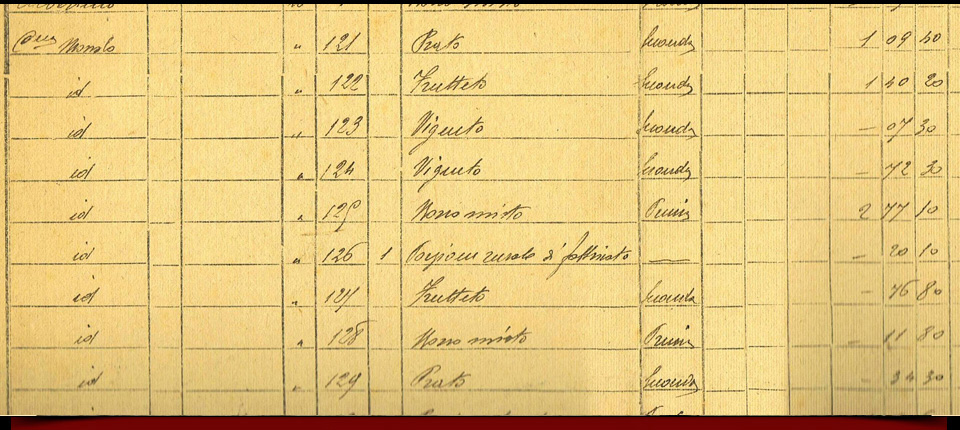 Casa Nonalo " 121 Prato Seconda 1 09 40
id " 122 Frutteto Seconda 1 40 20
id " 123 Vigneto Seconda – 07 30
id " 124 Vigneto Seconda – 72 30
id " 125 Noro misto Prima 2 77 10
id " 126 1 Porzione rurale di fabbricato — – 20 10
id " 127 Frutteto Seconda – 76 80
id " 128 Noro misto Prima – 11 80
id " 129 Prato Seconda – 34 30